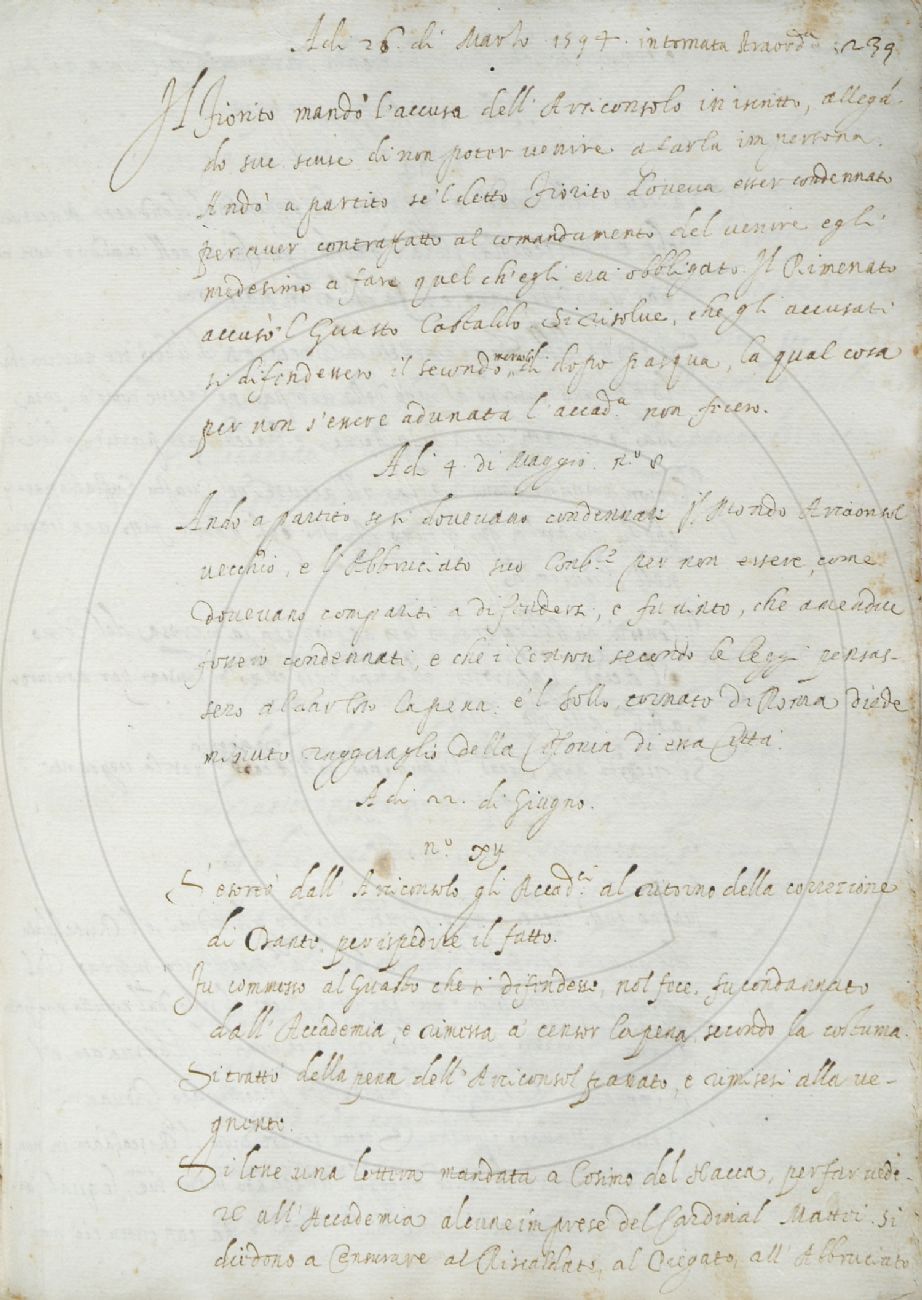 Adi 26. di Marzo 1594. in tornata straord.ª 239
Il Fiorito mandò l'accusa dell'Arciconsolo in iscritto, allegā-
do sue scuse di non poter venire a farla in persona.
Andò a partito se 'l detto Fiorito doveva esser condennato
per aver contraffatto al comandamento del venire egli
medesimo a fare quel ch'egli era obbligato. Il Rimenato
accusò 'l Guasto Castaldo. Si risolve, che gli accusati
si difendessero il secondo mercoldì dopo Pasqua, la qual cosa
per non s'essere adunata l'accad.ª non fecero.
Adi 4. di Maggio. n.º 8
Andò a partito se si dovevano condennare il Mondo Arciconsol
vecchio, e l'Abbruciato suo per non essere, come
dovevano compariti a difendersi, e fu vinto, che amendue
fossero condennati, e che i Censori secondo le leggi pensas-
sero al la pena. e 'l Sollo, tornato di Roma diede
minuto ragguaglio della Colonia di essa Città.
Adi 22. di Giugno.
n.º xij
S'esortò dall'Arciconsolo gli Accad.ci al ritorno della correzione
di Dante, per ispedire il fatto.
Fu commesso al Guasto che si difendesse, nol fece, fu condannato
dall'Accademia, e rimessa a' censor la pena, secondo la costuma.
Si trattò della pena dell'Arciconsol passato, e rimisesi alla ve-
gnente.
Si lesse una lettera mandata a Cosimo del Nacca, per far vede-
re all'Accademia alcune imprese del Cardinal Mattei. si
diedono a Censurare al Riscaldato, al Piegato, all'Abbruciato